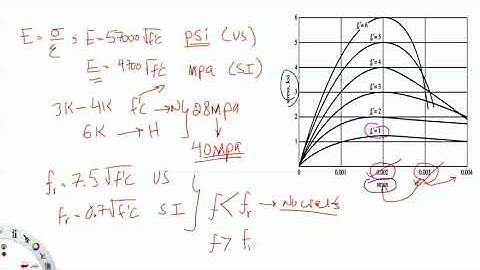 E = σ/ε ; E = 57000√f'c psi (US)
E = 4700√f'c mpa (SI)
3K-4K f'c → N 28mpa
6K → H 40mpa
fr = 7.5√f'c US
fr = 0.7√f'c SI
f < fr → No cracks
f > fr
6
5
4
3
2
1
f'c = 6
f'c = 5
f'c = 4
f'c = 3
f'c = 2
f'c = 1
0 0.001 0.002 0.003 0.004
strain